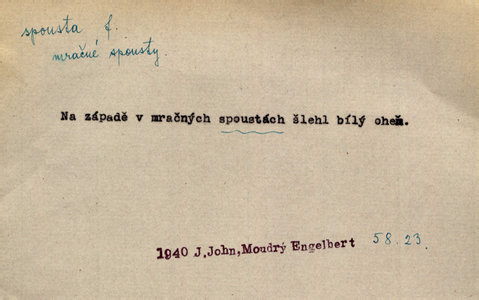 spousta f.
mračné spousty.
Na západě v mračných spoustách šlehl bílý oheň.
1940 J.John, Moudrý Engelbert 58.23